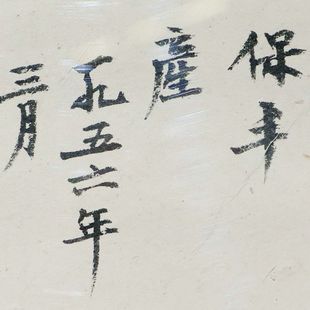 保丰
產
一九五六年
三月